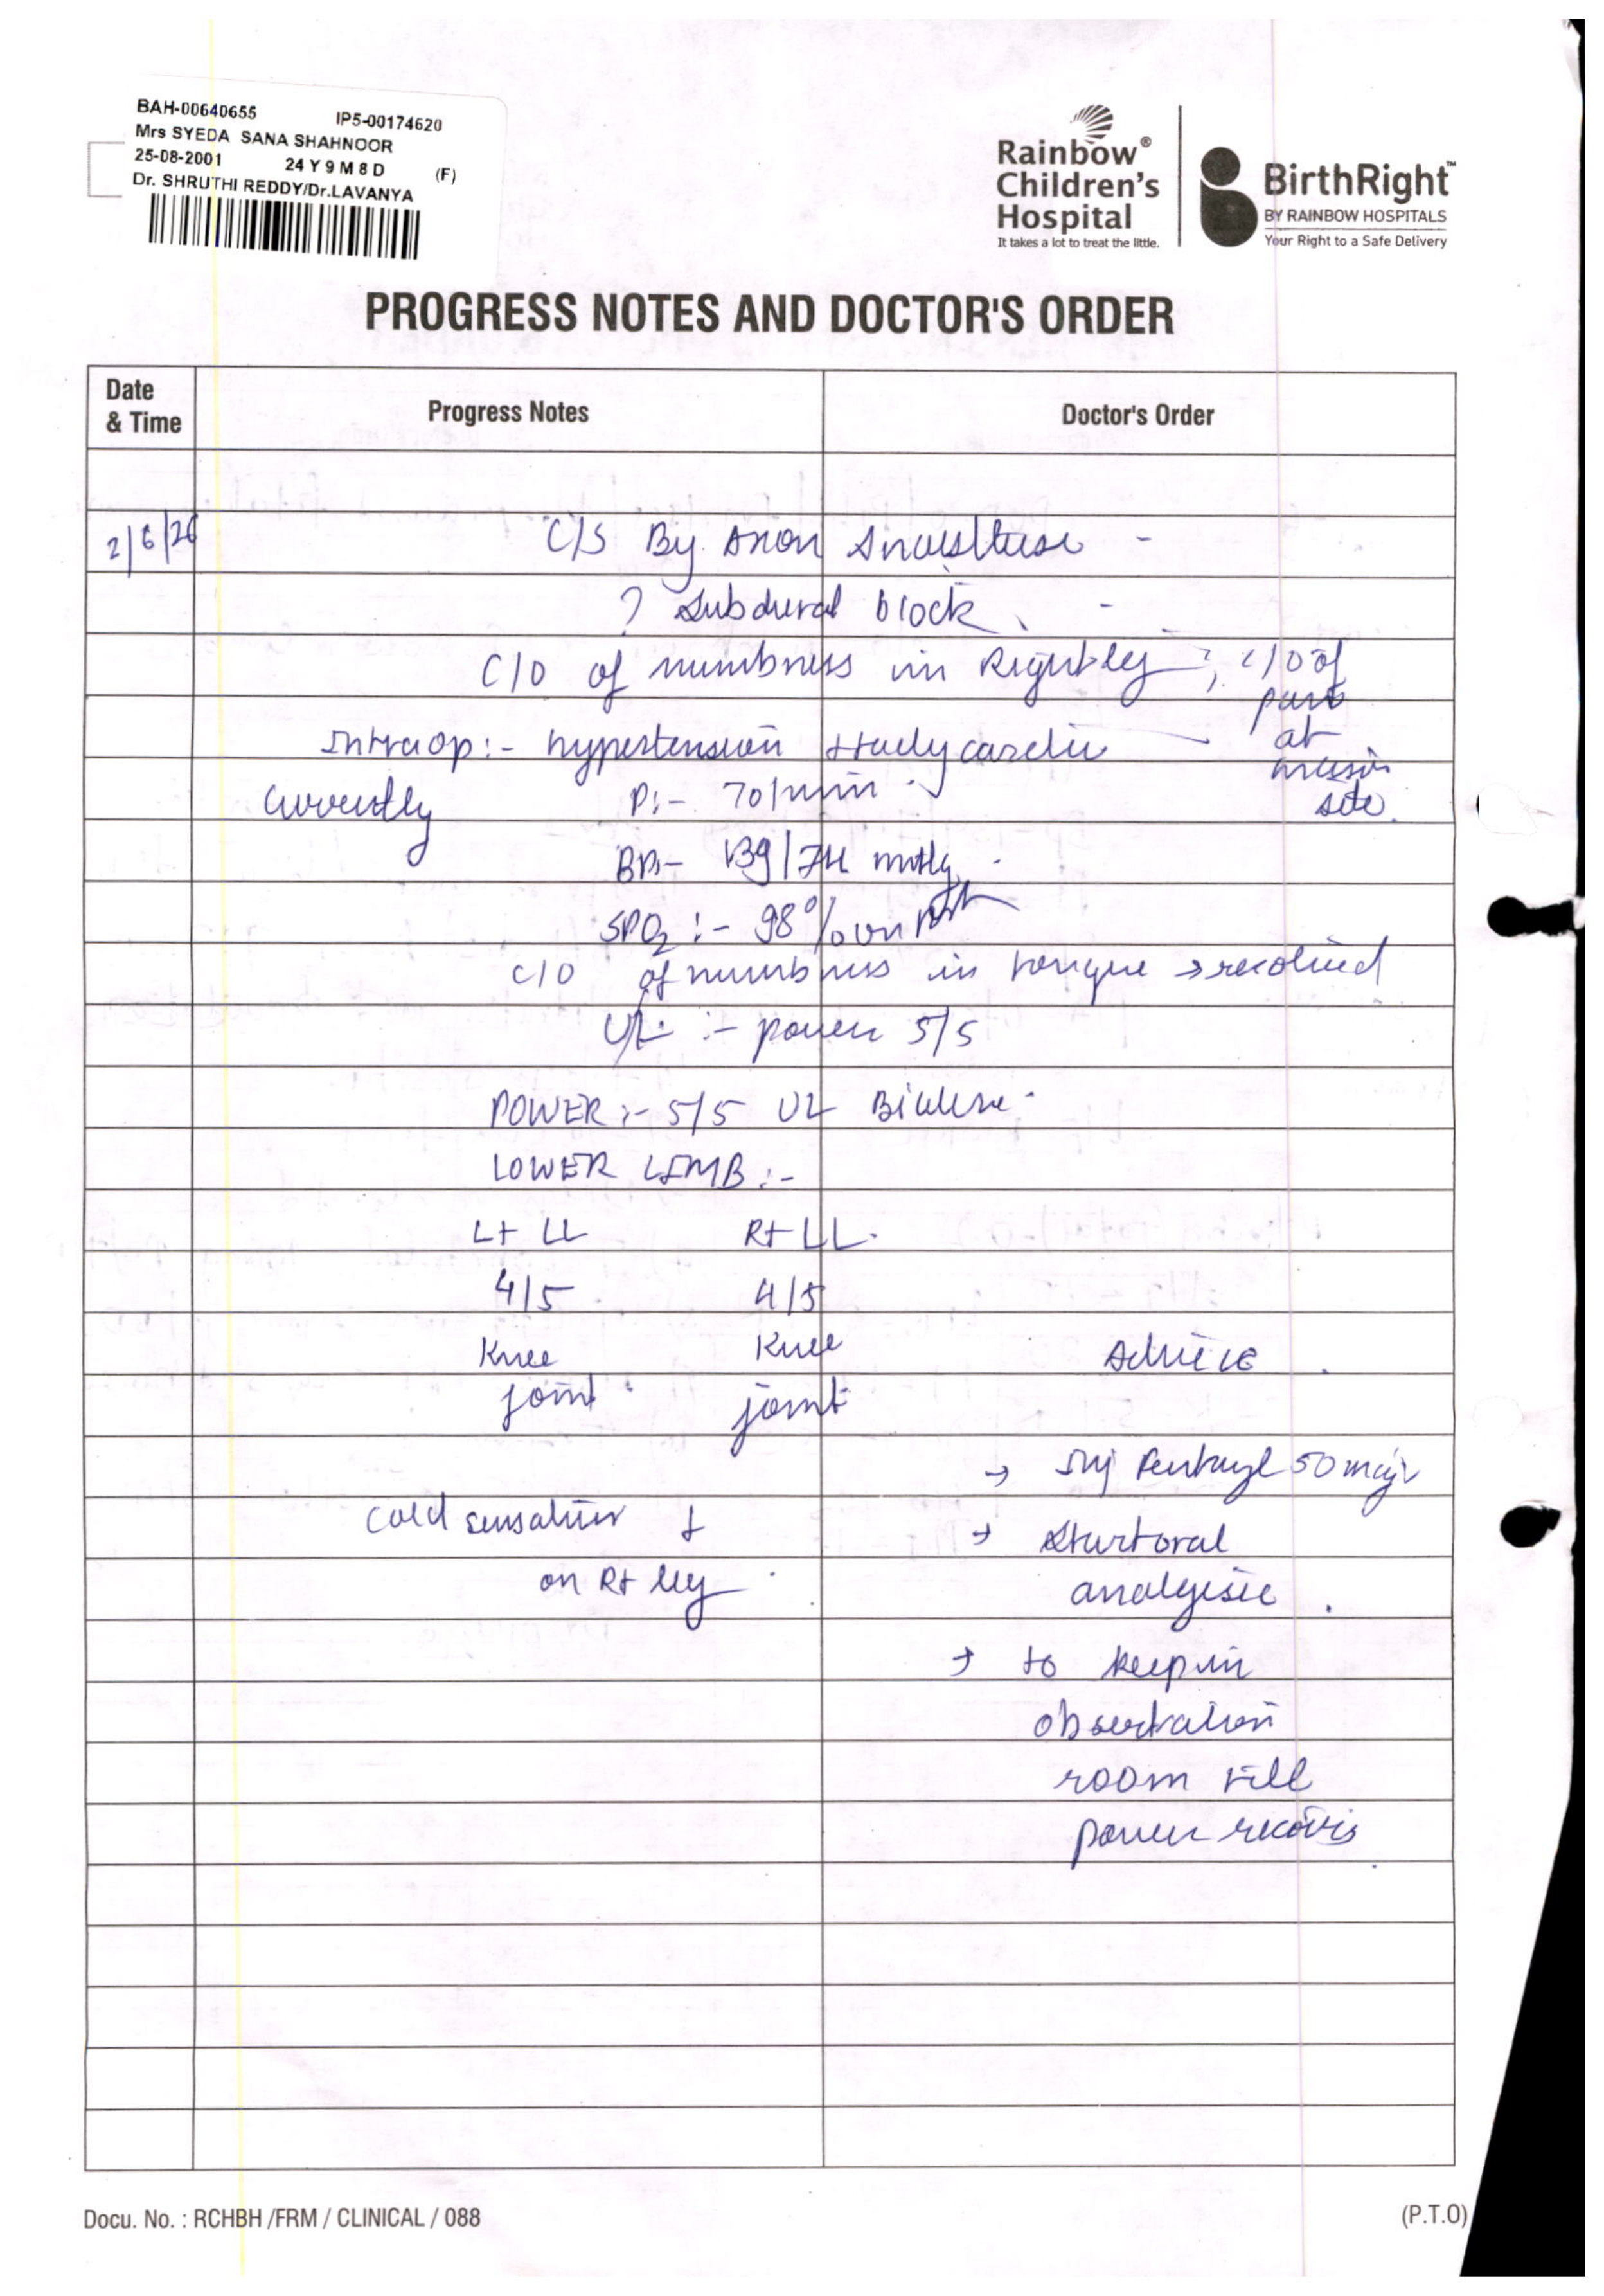 BAH-00640655 IP5-00174620
Mrs SYEDA SANA SHAHNOOR
25-08-2001 24 Y 9 M 8 D (F)
Dr. SHRUTHI REDDY/Dr.LAVANYA
Rainbow®
Children's
Hospital
It takes a lot to treat the little.
BirthRight™
BY RAINBOW HOSPITALS
Your Right to a Safe Delivery
PROGRESS NOTES AND DOCTOR'S ORDER
Date & Time
Progress Notes
Doctor's Order
2/6/26
C/S By
? Subdural block
C/O of numbness in Right leg ; C/O of
pain
at
incision
site.
Intraop:- hypertension
Currently P:- 70/min
BP:- 139/74
SPO2 :- 98%
C/O of numbness in tongue → resolved
UL :- power 5/5
POWER :- 5/5 UL
LOWER LIMB :-
Lt LL Rt LL
4/5 4/5
Knee Knee
joint joint
Advice
→ Inj Fentanyl 50 mcg
cold sensation ↓
on Rt leg
→ Start oral
analgesic
→ to keep in
observation
room till
power recovers
Docu. No. : RCHBH /FRM / CLINICAL / 088
(P.T.O)